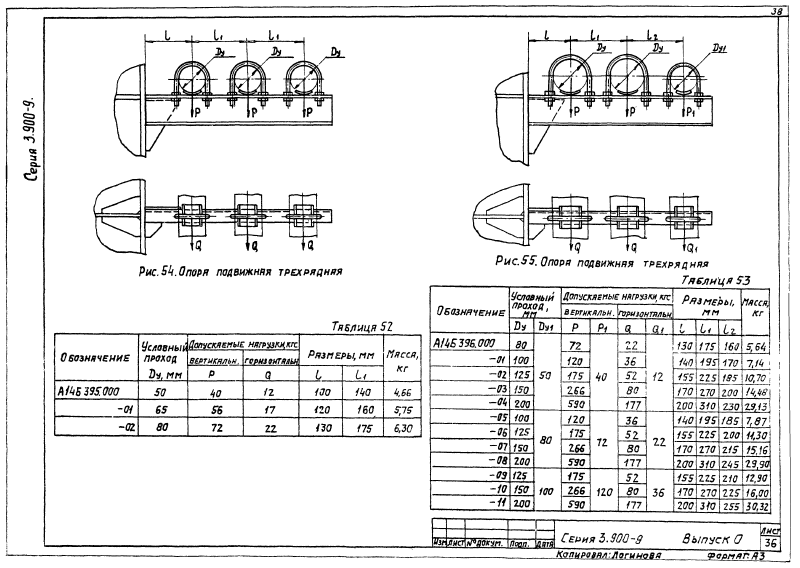 38
Серия 3.900-9.
l l₁ l₁
Dу Dу Dу
P P P
Q Q Q
Рис. 54. Опора подвижная трехрядная
l l₁ l₂
Dу Dу Dу1
P P P₁
Q Q Q₁
Рис. 55. Опора подвижная трехрядная
Таблица 52
Обозначение Условный проход Dу, мм Допускаемые нагрузки, кгс Размеры, мм Масса, кг
вертикальн. P горизонтальн. Q l l₁
А14Б 395.000 50 40 12 100 140 4,66
-01 65 56 17 120 160 5,75
-02 80 72 22 130 175 6,30
Таблица 53
Обозначение Условный проход, мм Допускаемые нагрузки, кгс Размеры, мм Масса, кг
вертикальн. горизонтальн.
Dу Dу1 P P₁ Q Q₁ l l₁ l₂
А14Б 396.000 80 72 22 130 175 160 5,64
-01 100 120 36 140 195 170 7,14
-02 125 50 175 40 52 12 155 225 185 10,70
-03 150 266 80 170 270 200 14,48
-04 200 590 177 200 310 230 29,13
-05 100 120 36 140 195 185 7,87
-06 125 80 175 72 52 22 155 225 200 11,30
-07 150 266 80 170 270 215 15,16
-08 200 590 177 200 310 245 29,90
-09 125 175 52 155 225 210 12,90
-10 150 100 266 120 80 36 170 270 225 16,00
-11 200 590 177 200 310 255 30,32
Изм. Лист № докум. Подп. Дата
Серия 3.900-9 Выпуск 0
Лист
36
Копировал: Логинова Формат: А3